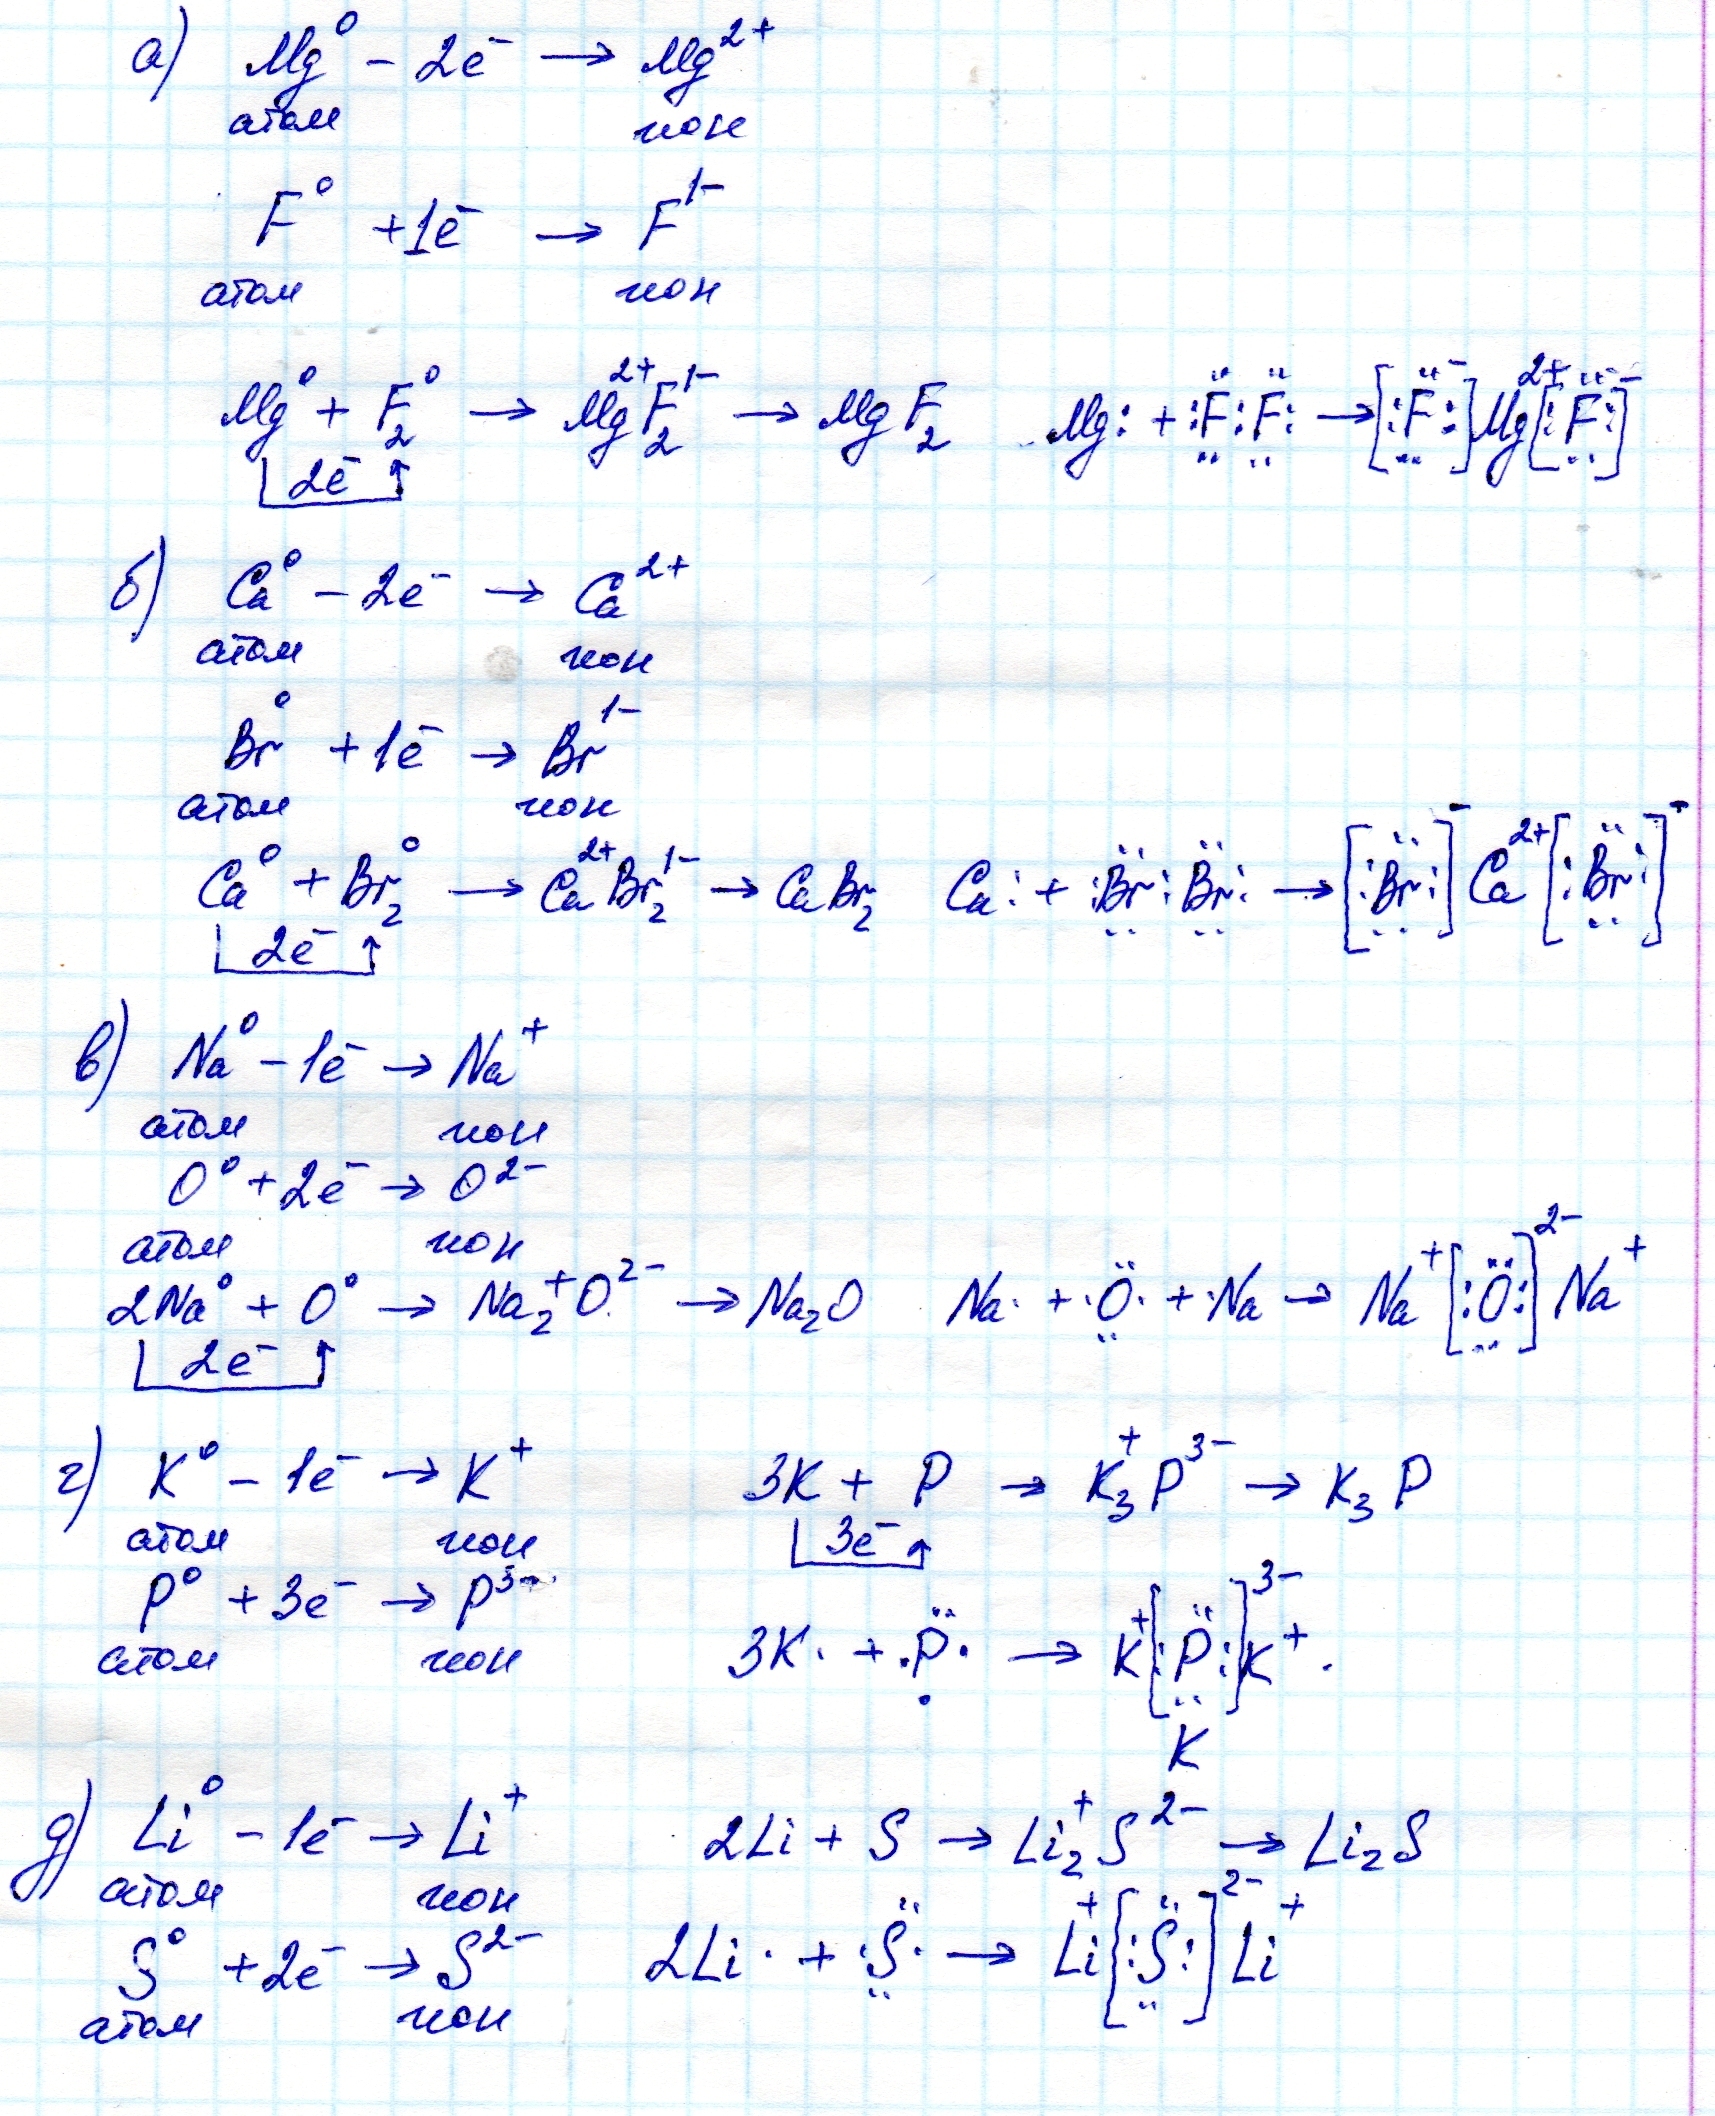 а) Mg⁰ – 2e⁻ → Mg²⁺
атом ион
F⁰ + 1e⁻ → F¹⁻
атом ион
Mg⁰ + F₂⁰ → Mg²⁺F₂¹⁻ → MgF₂ Mg: + :F̤̈:F̤̈: → [:F̤̈:]⁻Mg²⁺[:F̤̈:]⁻
2e⁻
б) Ca⁰ – 2e⁻ → Ca²⁺
атом ион
Br⁰ + 1e⁻ → Br¹⁻
атом ион
Ca⁰ + Br₂⁰ → Ca²⁺Br₂¹⁻ → CaBr₂ Ca: + :B̤̈r:B̤̈r: → [:B̤̈r:]⁻Ca²⁺[:B̤̈r:]⁻
2e⁻
в) Na⁰ – 1e⁻ → Na⁺
атом ион
O⁰ + 2e⁻ → O²⁻
атом ион
2Na⁰ + O⁰ → Na₂⁺O²⁻ → Na₂O Na· + ·Ö̤· + ·Na → Na⁺[:Ö̤:]²⁻Na⁺
2e⁻
г) K⁰ – 1e⁻ → K⁺ 3K + P → K₃⁺P³⁻ → K₃P
атом ион 3e⁻
P⁰ + 3e⁻ → P³⁻
атом ион 3K· + ·P̣̈· → K⁺[:P̤̈:]³⁻K⁺
K
д) Li⁰ – 1e⁻ → Li⁺ 2Li + S → Li₂⁺S²⁻ → Li₂S
атом ион
S⁰ + 2e⁻ → S²⁻ 2Li· + ·S̤̈· → Li⁺[:S̤̈:]²⁻Li⁺
атом ион